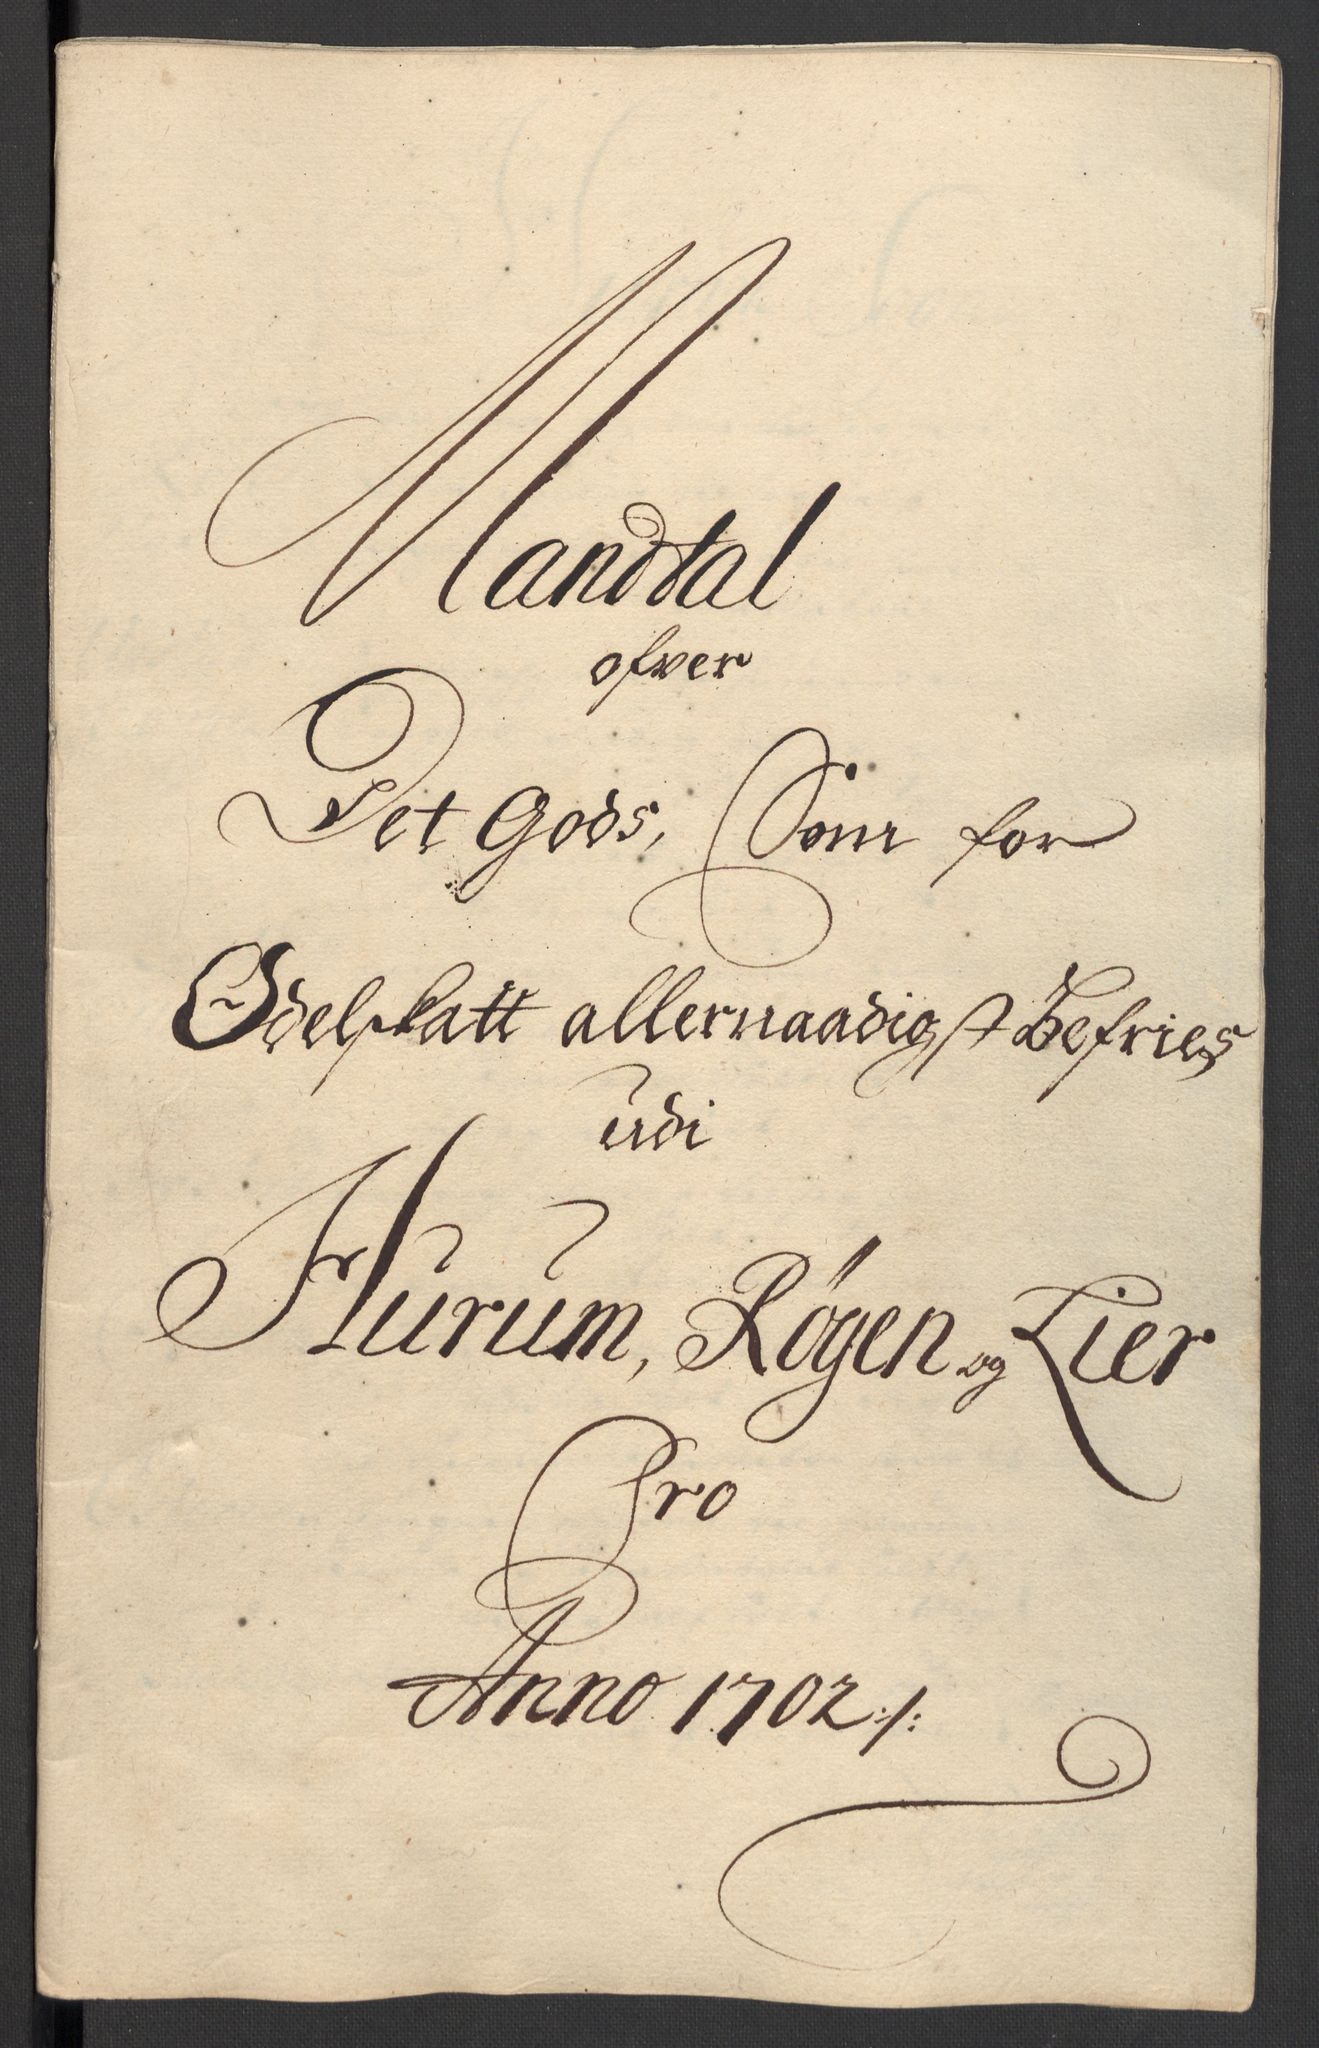 Mandtal
ofver
Det Gods, Som for
Odelskatt allernaadigst Befries
udi
Hurum, Røgen og Lier
Pro
Anno 1702 ./.